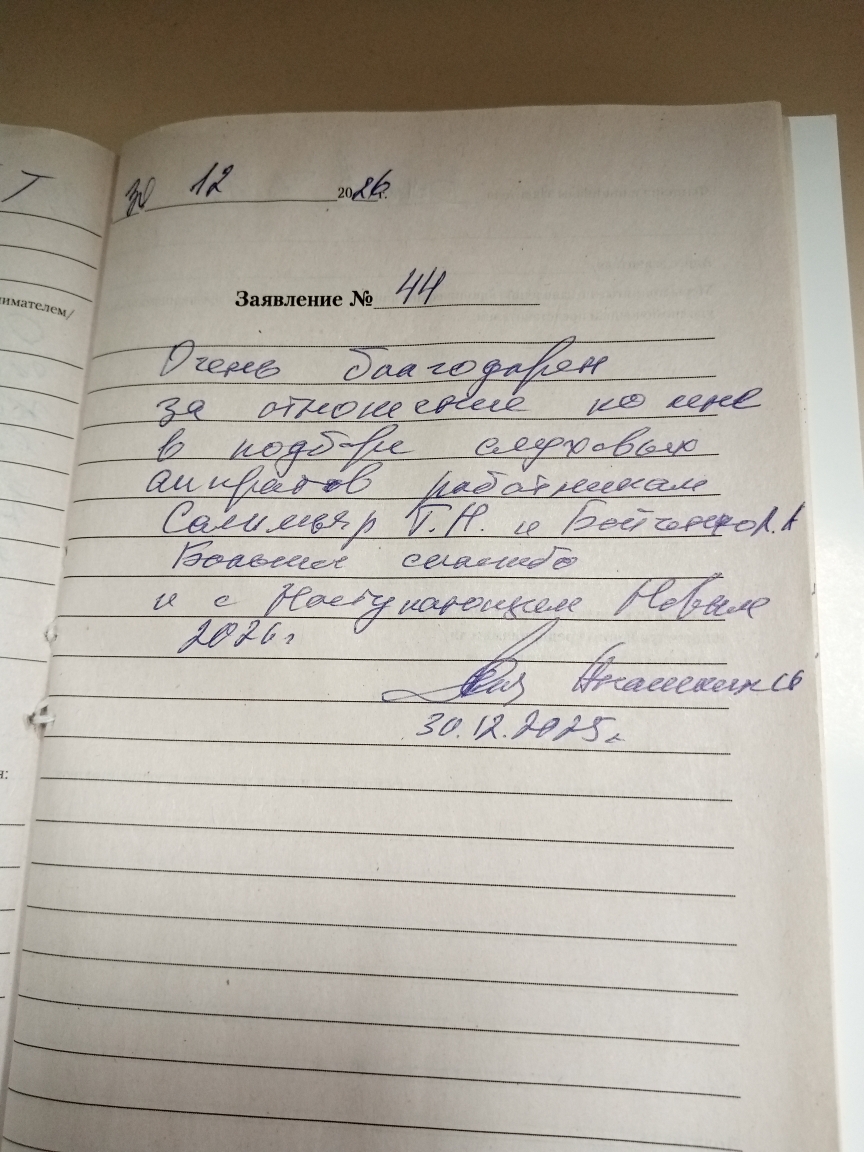 Т
нимателем/
я:
30 12 2026 г.
Заявление № 44
Очень благодарен
за отношение ко мне
в подборе слуховых
аппаратов работникам
Г.Н. и Бойченко Л.А
Большое спасибо
и с Наступающем Новым
2026 г
30.12.2025 г.